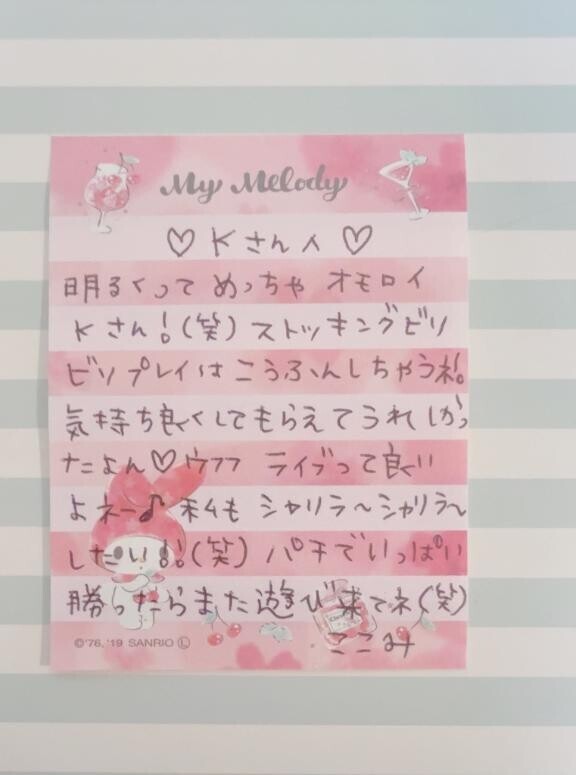 My Melody
♡ Kさんへ ♡
明るくって めっちゃ オモロイ
Kさん!(笑) ストッキングビリ
ビリプレイは こうふんしちゃうネ!。
気持ち良くしてもらえてうれしかっ
たよん♡ウフフ ライブって良い
よネー♪ 私も シャリラ〜シャリラ〜
したい!!(笑) パチでいっぱい
勝ったらまた遊び来てネ(笑)
ここみ
©'76, '19 SANRIO Ⓛ